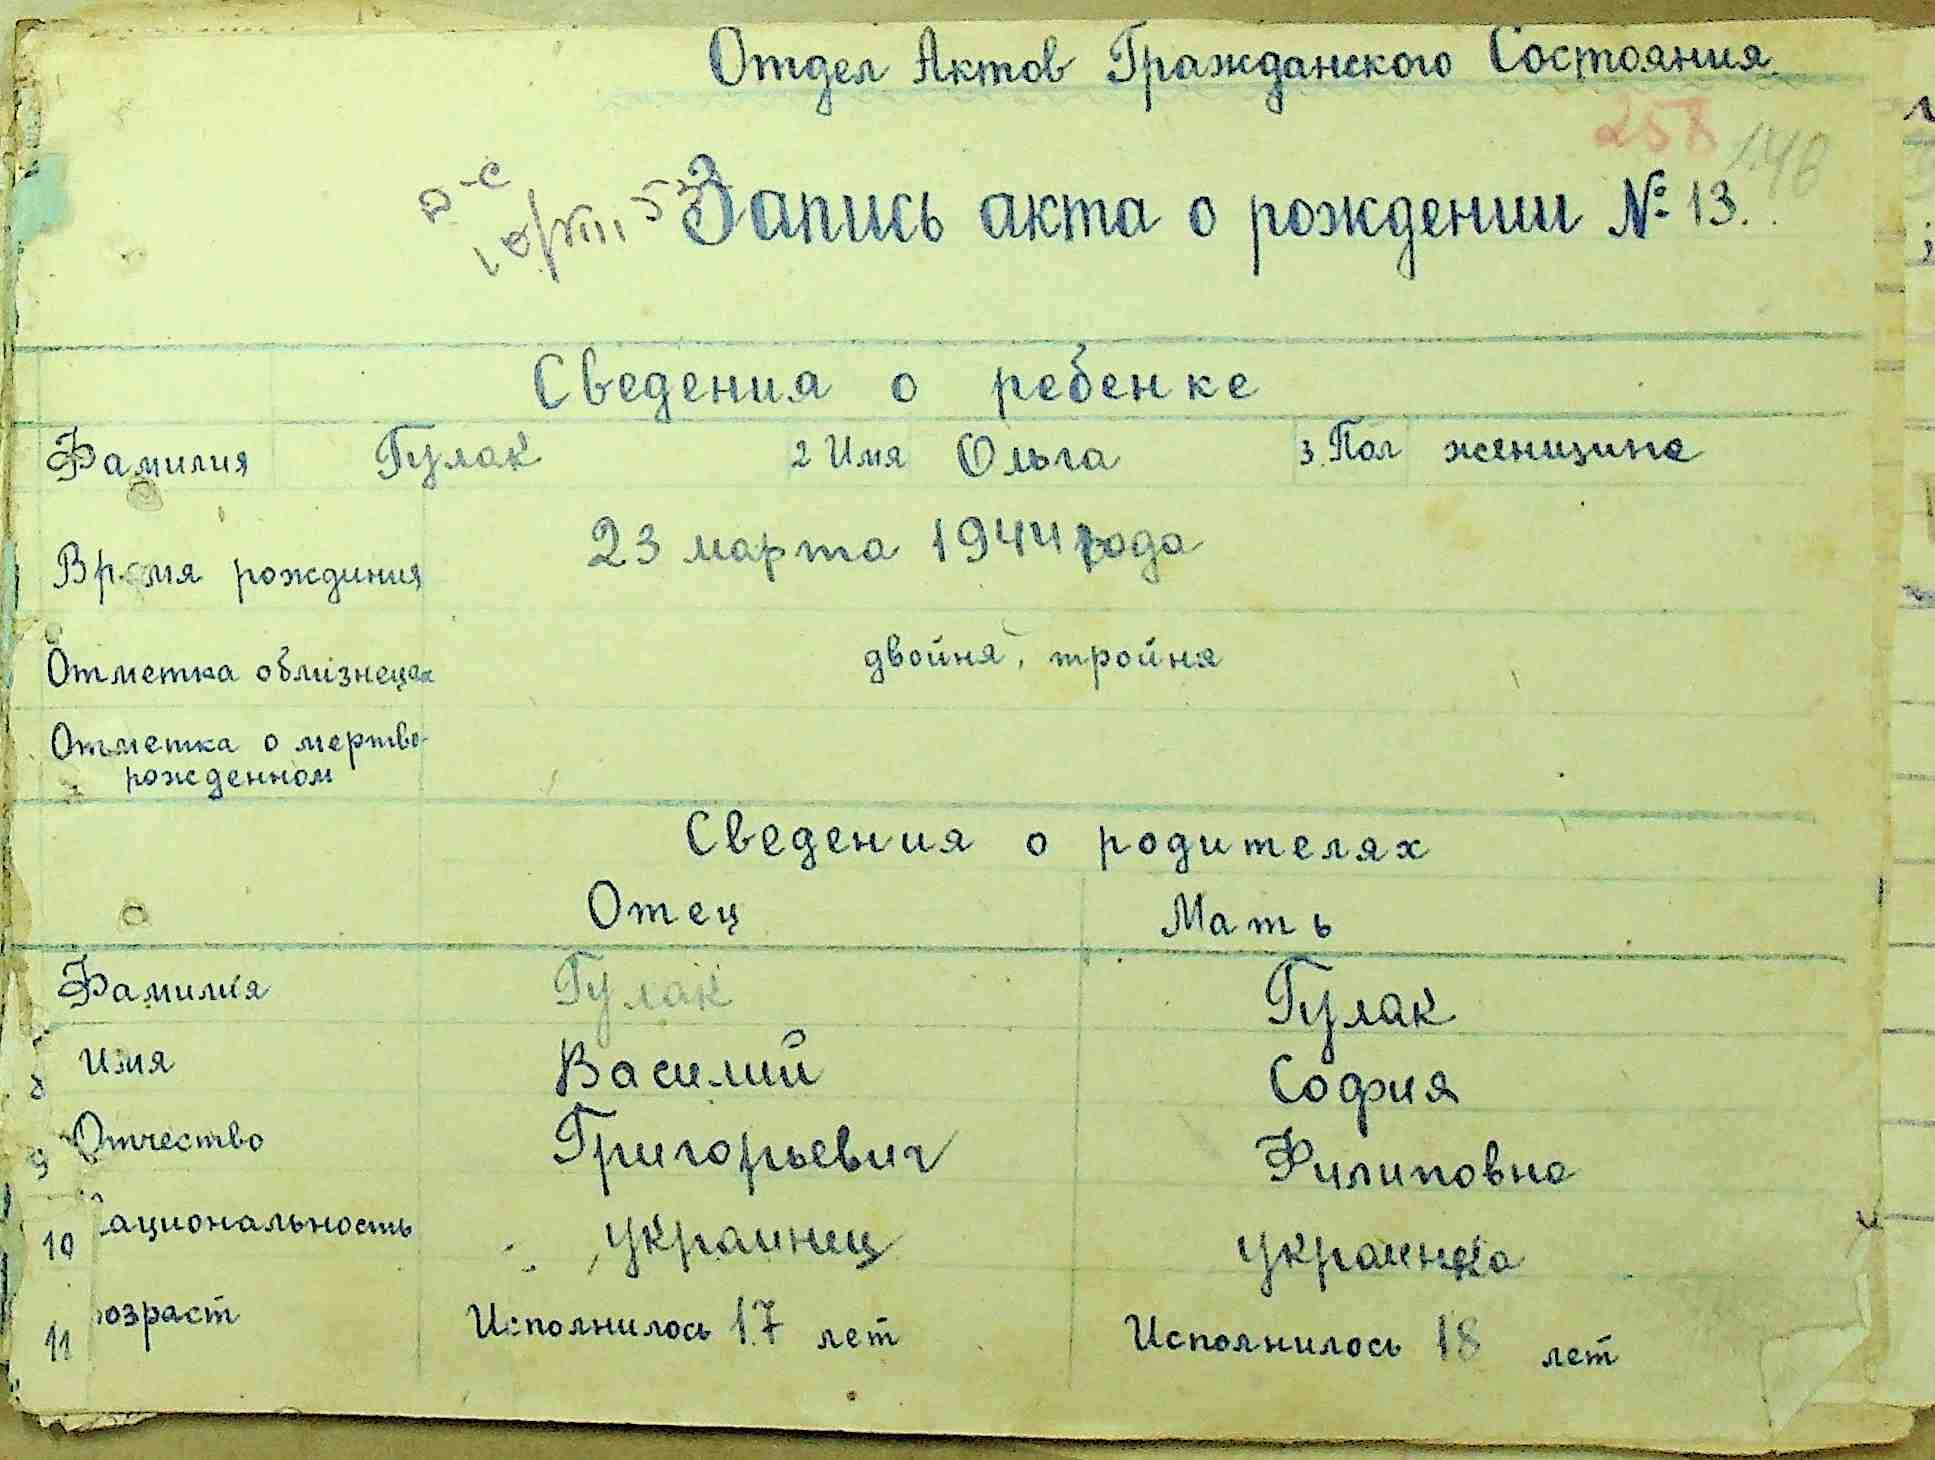 Отдел Актов Гражданского Состояния
258
Запись акта о рождении № 13.
Сведения о ребенке
Фамилия Гулак 2 Имя Ольга 3. Пол женщина
Время рождиния 23 марта 1944 года
Отметка облизнецах двойня, тройня
Отметка о мертво-
рожденном
Сведения о родителях
Отец Мать
Фамилия Гулак Гулак
Имя Василий София
9 Отчество Григорьевич Филиповна
10 ациональность украинец украинка
11 озраст Исполнилось 17 лет Исполнилось 18 лет